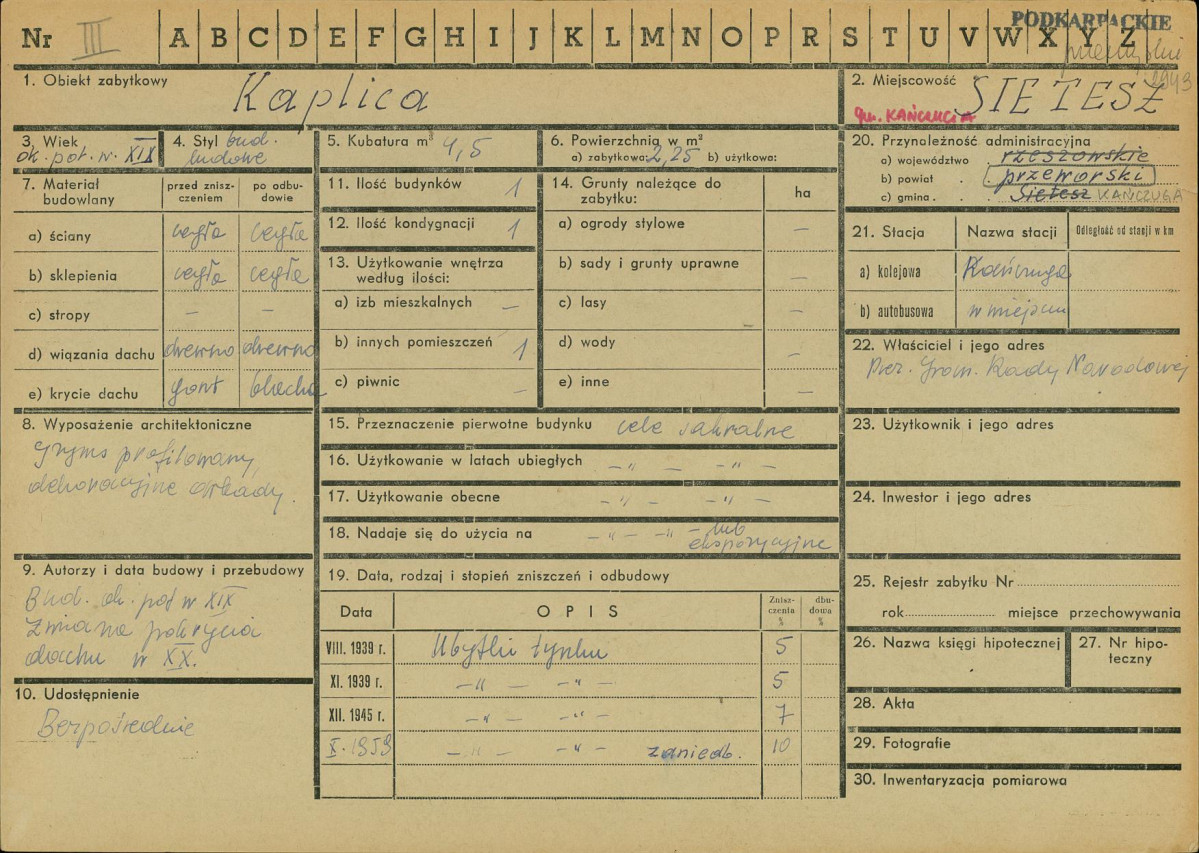 PODKARPACKIE
Nr III A B C D E F G H I J K L M N O P R S T U V W X Y Z
1. Obiekt zabytkowy Kaplica
2. Miejscowość SIETESZ
gm. KAŃCZUGA
3. Wiek ok. poł. w. XIX
4. Styl bud. ludowe
5. Kubatura m³ 4,5
6. Powierzchnia w m²
a) zabytkowa: 2,25 b) użytkowa:
7. Materiał budowlany
przed zniszczeniem
po odbudowie
a) ściany cegła cegła
b) sklepienia cegła cegła
c) stropy – –
d) wiązania dachu drewno drewno
e) krycie dachu gont blacha
8. Wyposażenie architektoniczne
Gzyms profilowany,
dekoracyjne arkady.
9. Autorzy i data budowy i przebudowy
Bud. ok. poł w XIX
Zmiana pokrycia
dachu w XX.
10. Udostępnienie
Bezpośrednie
11. Ilość budynków 1
12. Ilość kondygnacji 1
13. Użytkowanie wnętrza
według ilości:
a) izb mieszkalnych –
b) innych pomieszczeń 1
c) piwnic –
14. Grunty należące do
zabytku: ha
a) ogrody stylowe –
b) sady i grunty uprawne –
c) lasy –
d) wody –
e) inne –
15. Przeznaczenie pierwotne budynku cele sakralne
16. Użytkowanie w latach ubiegłych – " – – " –
17. Użytkowanie obecne – " – – " –
18. Nadaje się do użycia na – " – – " – lub
ekspozycyjne
19. Data, rodzaj i stopień zniszczeń i odbudowy
Data OPIS Zniszczenia % dbudowa %
VIII. 1939 r. Ubytki tynku 5
XI. 1939 r. – " – – " – 5
XII. 1945 r. – " – – " – 7
X. 1959 – " – – " – zaniedb. 10
20. Przynależność administracyjna
a) województwo rzeszowskie
b) powiat przeworski
c) gmina Sietesz KAŃCZUGA
21. Stacja Nazwa stacji Odległość od stacji w km
a) kolejowa Kańczuga
b) autobusowa w miejscu
22. Właściciel i jego adres
Prez. Grom. Rady Narodowej
23. Użytkownik i jego adres
24. Inwestor i jego adres
25. Rejestr zabytku Nr
rok miejsce przechowywania
26. Nazwa księgi hipotecznej
27. Nr hipoteczny
28. Akta
29. Fotografie
30. Inwentaryzacja pomiarowa